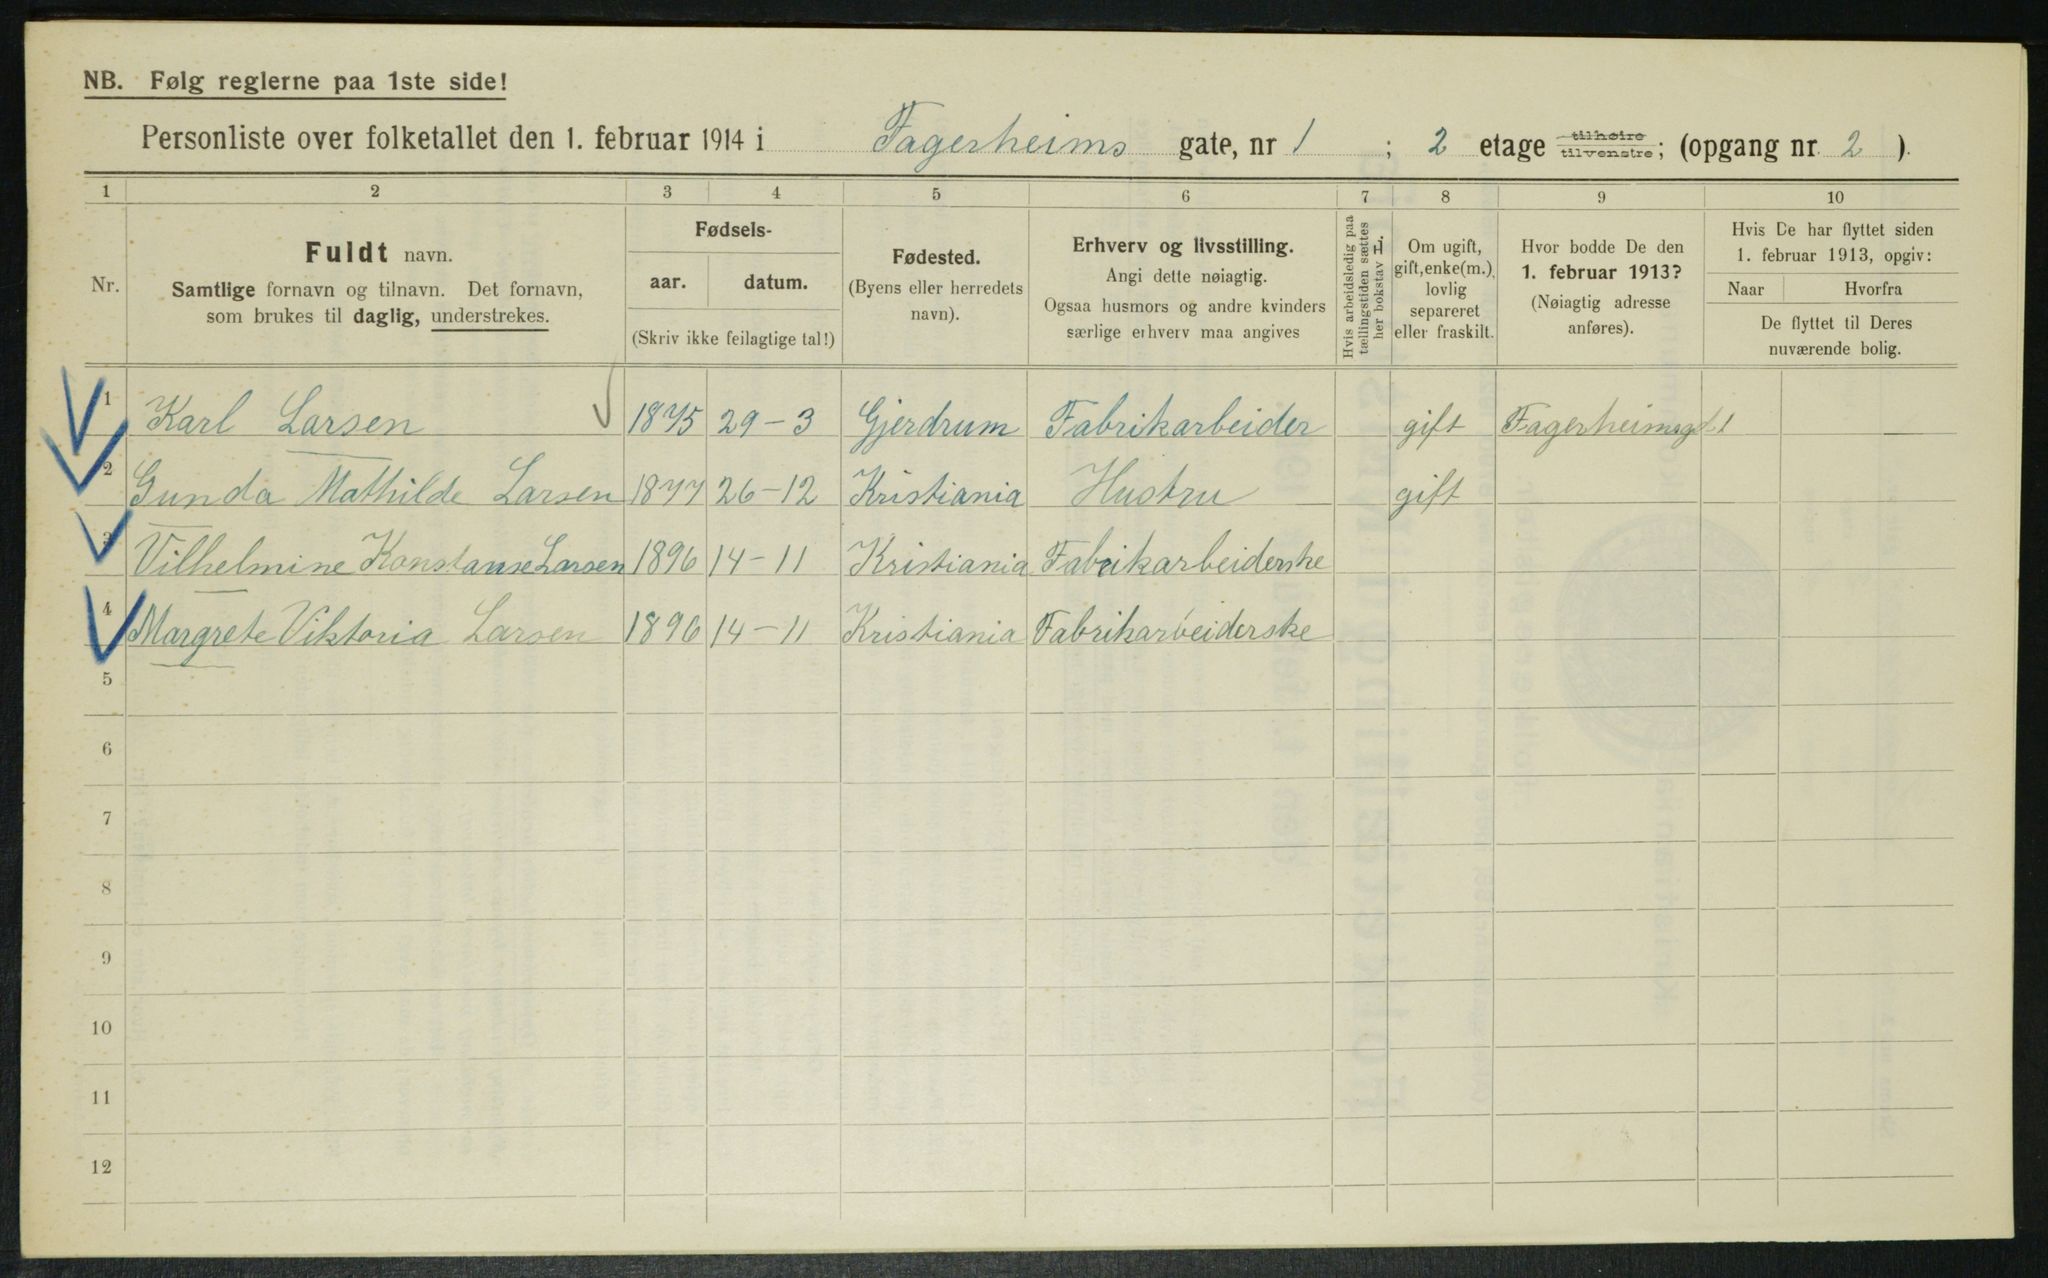 NB. Følg reglerne paa 1ste side!
Personliste over folketallet den 1. februar 1914 i Fagerheims gate, nr 1 ; 2 etage tilhøire tilvenstre; (opgang nr. 2 ).
1 2 3 4 5 6 7 8 9 10
Nr.
Fuldt navn.
Samtlige fornavn og tilnavn. Det fornavn,
som brukes til daglig, understrekes.
Fødsels-
aar. datum.
(Skriv ikke feilagtige tal!)
Fødested.
(Byens eller herredets
navn).
Erhverv og livsstilling.
Angi dette nøiagtig.
Ogsaa husmors og andre kvinders
særlige erhverv maa angives
Hvis arbeidsledig paa
tællingstiden sættes
her bokstav L.
Om ugift,
gift, enke(m.),
lovlig
separeret
eller fraskilt.
Hvor bodde De den
1. februar 1913?
(Nøiagtig adresse
anføres).
Hvis De har flyttet siden
1. februar 1913, opgiv:
Naar Hvorfra
De flyttet til Deres
nuværende bolig.
1 Karl Larsen 1875 29-3 Gjerdrum Fabrikarbeider gift Fagerheimsgt 1
2 Gunda Mathilde Larsen 1877 26-12 Kristiania Hustru gift
3 Vilhelmine Konstanse Larsen 1896 14-11 Kristiania Fabrikarbeiderske
4 Margrete Viktoria Larsen 1896 14-11 Kristiania Fabrikarbeiderske
5
6
7
8
9
10
11
12